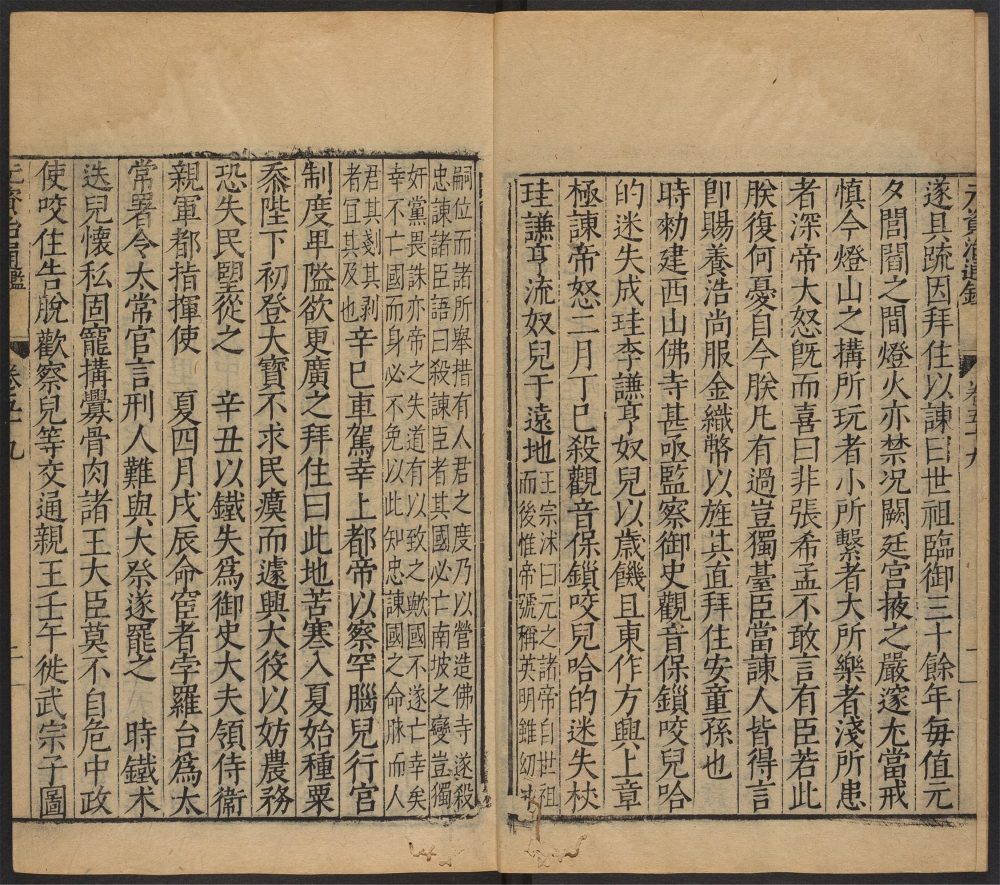 元資治通鑑 卷五十九
遂具疏因拜住以諫曰世祖臨御三十餘年每值元
夕閭閻之間燈火亦禁况闕廷宫掖之嚴邃尤當戒
慎今燈山之搆所玩者小所繫者大所樂者淺所患
者深帝大怒旣而喜曰非張希孟不敢言有臣若此
朕復何憂自今朕凡有過豈獨臺臣當諫人皆得言
卽賜養浩尚服金織幣以旌其直拜住安童孫也
時勑建西山佛寺甚亟監察御史觀音保鎖咬兒哈
的迷失成珪李謙亨奴兒以歲饑且東作方興上章
極諫帝怒二月丁巳殺觀音保鎖咬兒哈的迷失杖
珪謙亨流奴兒于遠地王宗沭曰元之諸帝自世祖
而後惟帝號稱英明雖幼冲
嗣位而諸所舉措有人君之度乃以營造佛寺遂殺
忠諫諸臣語曰殺諫臣者其國必亡南坡之變豈獨
奸黨畏誅亦帝之失道有以致之歟國不遂亡幸矣
幸不亡國而身必不免以此知忠諫國之命脉而人
君其戔其剥
者冝其及也辛巳車駕幸上都帝以察罕腦兒行宫
制度卑隘欲更廣之拜住曰此地苦寒入夏始種粟
黍陛下初登大寶不求民瘼而遽興大役以妨農務
恐失民朢從之 辛丑以鐵失爲御史大夫領侍衞
親軍都指揮使 夏四月戌辰命宦者孛羅台爲太
常署令太常官言刑人難與大祭遂罷之 時鐵木
迭兒懷私固寵搆釁骨肉諸王大臣莫不自危中政
使咬住告脫歡察兒等交通親王壬午徙武宗子圖
元資治通鑑 卷五十九